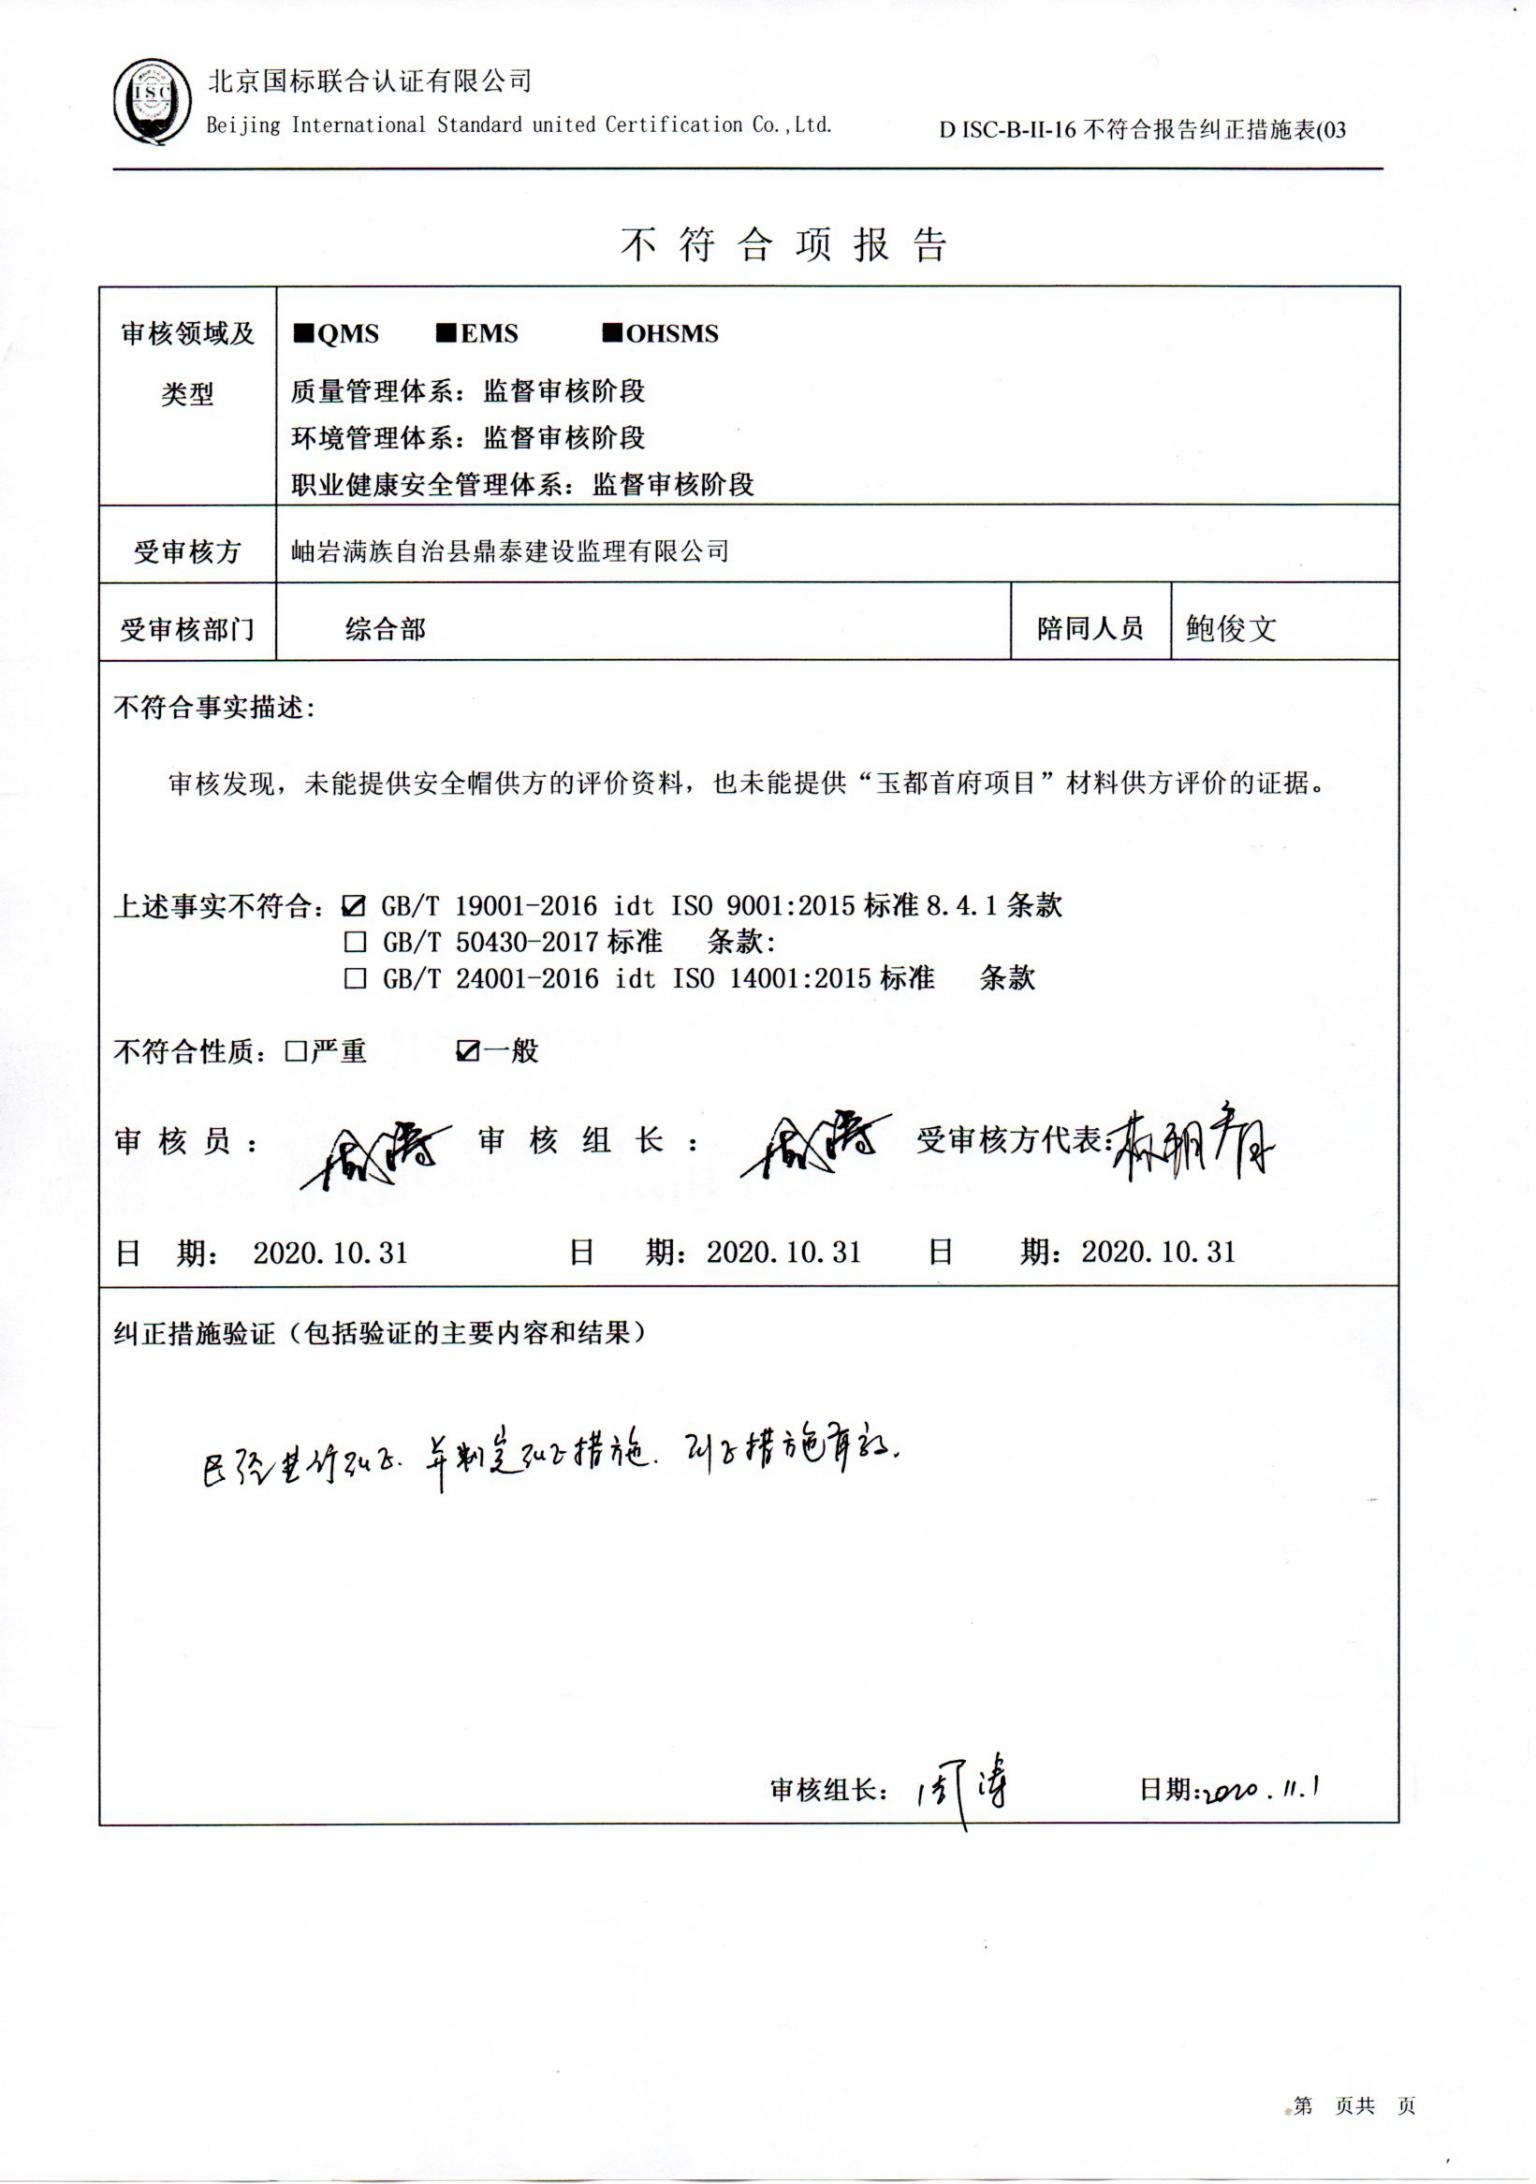 ISC
北京国标联合认证有限公司
Beijing International Standard united Certification Co.,Ltd.
D ISC-B-II-16 不符合报告纠正措施表(03
不符合项报告
审核领域及类型
■QMS ■EMS ■OHSMS
质量管理体系：监督审核阶段
环境管理体系：监督审核阶段
职业健康安全管理体系：监督审核阶段
受审核方 岫岩满族自治县鼎泰建设监理有限公司
受审核部门 综合部 陪同人员 鲍俊文
不符合事实描述：
审核发现，未能提供安全帽供方的评价资料，也未能提供“玉都首府项目”材料供方评价的证据。
上述事实不符合：☑ GB/T 19001-2016 idt ISO 9001:2015 标准 8.4.1 条款
□ GB/T 50430-2017 标准 条款：
□ GB/T 24001-2016 idt ISO 14001:2015 标准 条款
不符合性质：□严重 ☑一般
审核员： 周涛 审核组长： 周涛 受审核方代表：
日 期： 2020.10.31 日 期：2020.10.31 日 期：2020.10.31
纠正措施验证（包括验证的主要内容和结果）
已经进行纠正．并制定纠正措施．纠正措施有效．
审核组长： 周涛 日期：2020.11.1
第 页共 页